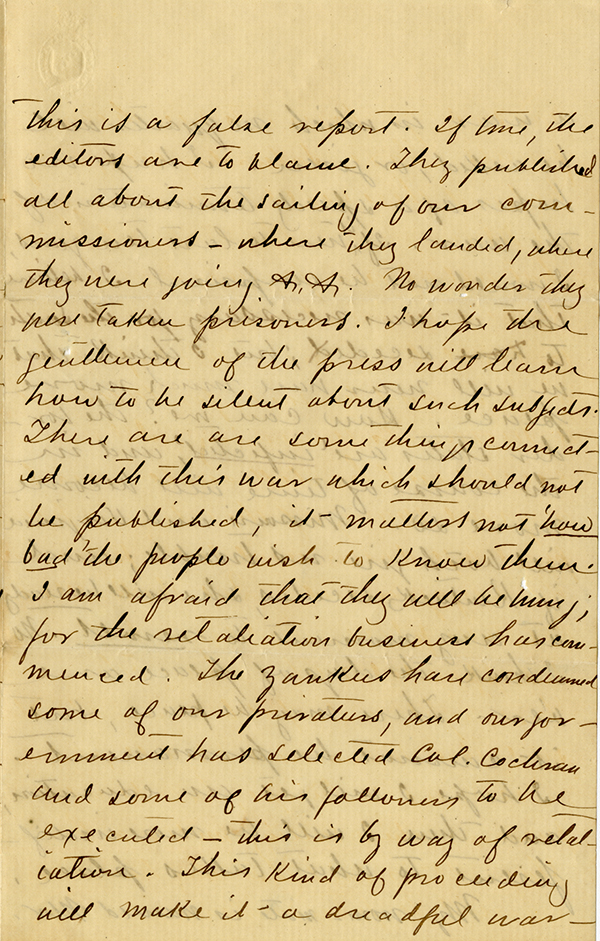 this is a false report. If true, the
editors are to blame. They published
all about the sailing of our com-
missioners - where they landed, where
they were going &c, &c. No wonder they
were taken prisoners. I hope the
gentlemen of the press will learn
how to be silent about such subjects.
There are are some things connect-
ed with this war which should not
be published, it matters not 'how
bad' the people wish to know them.
I am afraid that they will be hung;
for the retaliation business has com-
menced. The Yankees have condemned
some of our privateers, and our gov-
ernment has selected Col. Cochran
and some of his followers to be
executed - this is by way of retal-
iation. This kind of proceeding
will make it a dreadful war -